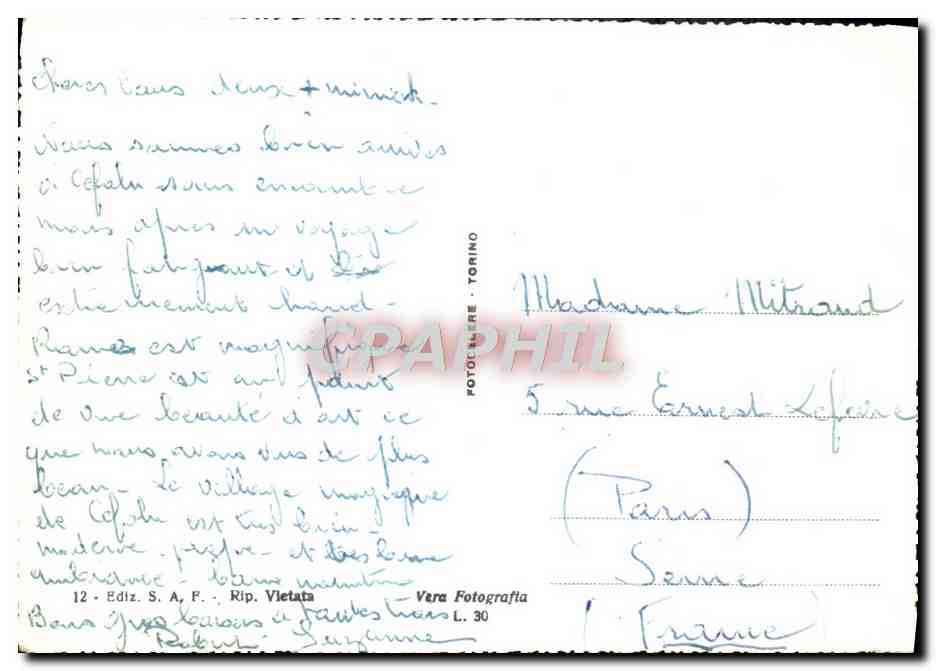 Chers tous deux + minick.
Nous sommes bien arrivés
à Cefalu sans encombre
mais après un voyage
bien fatiguant et
extrêmement chaud -
Rome est magnifique
St Pierre est au point
de vue beauté d'art ce
que nous avons vus de plus
beau - Le village magique
de Cefalu est très bien -
moderne - propre - et très bonne
ambiance - bonne
Bons gros baisers à tous
Robert Suzanne
12 - Ediz. S. A. F. - Rip. Vietata
Vera Fotografia
L. 30
FOTOCELERE - TORINO
CPAPHIL
Madame Mitraud
5 rue Ernest Lefevre
(Paris)
Seine
(France)